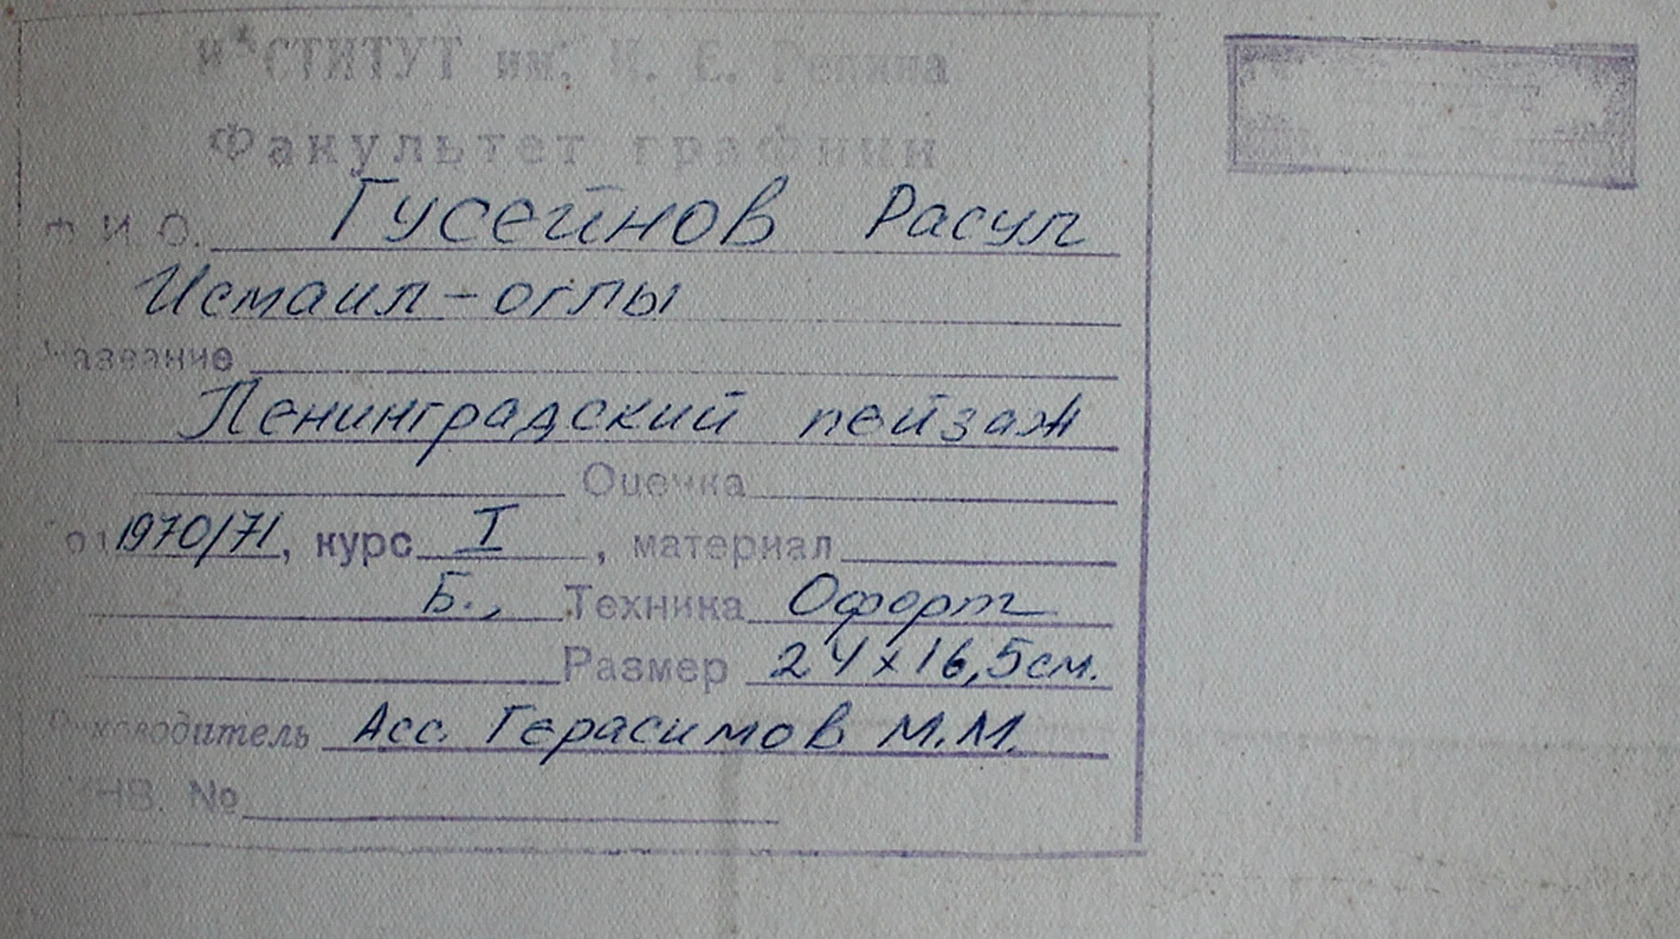 ИНСТИТУТ им. И. Е. Репина
Факультет графики
Ф. И. О. Гусейнов Расул
Исмаил-оглы
Название
Ленинградский пейзаж
Оценка
1970/71, курс I, материал
Б., Техника Офорт
Размер 24х16,5см.
Руководитель Асс. Герасимов М.М.
ИНВ. №